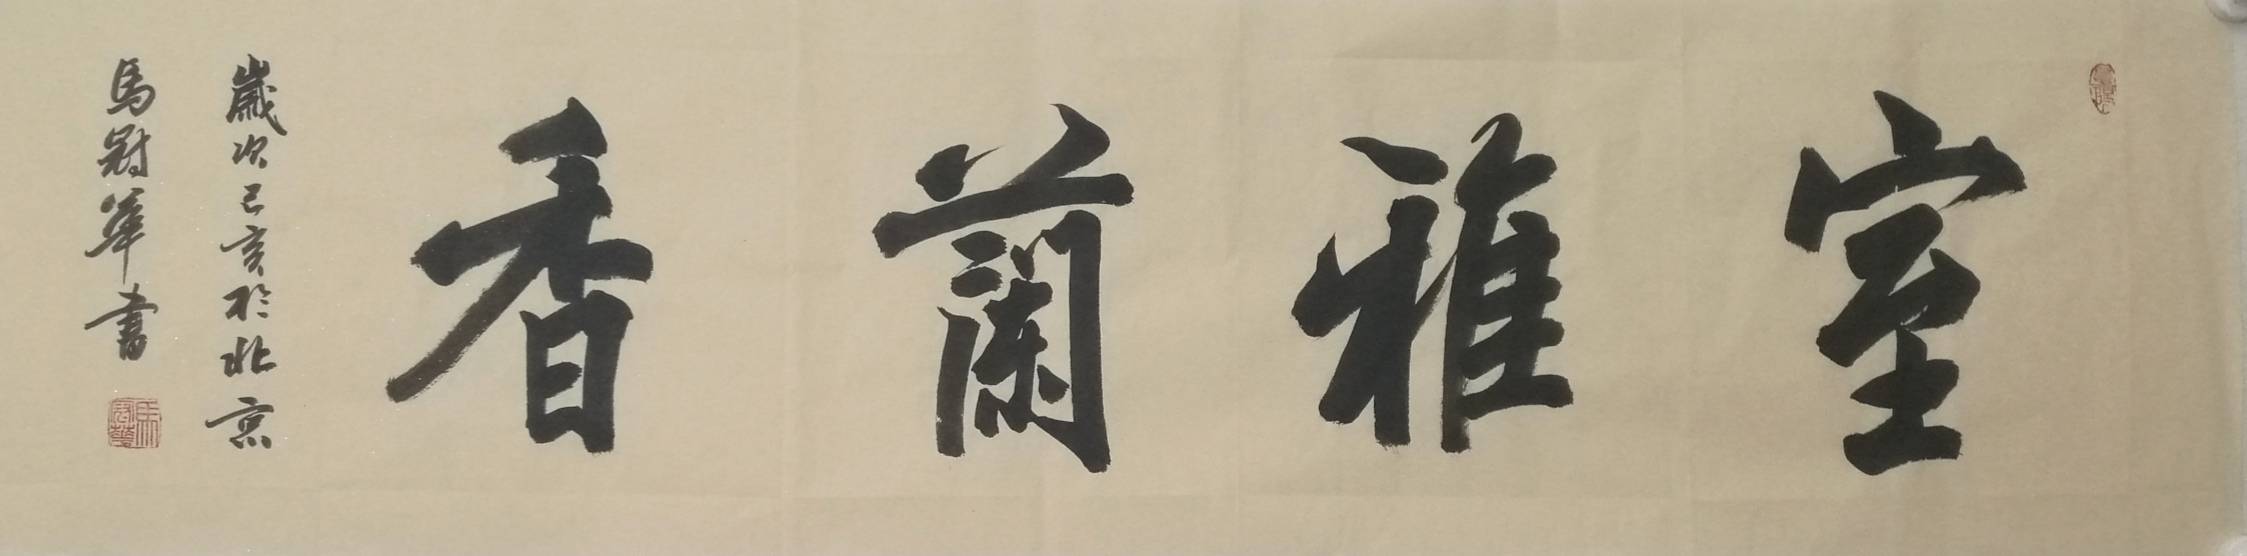 室雅蘭香
歲次己亥於北京
馬冠華書